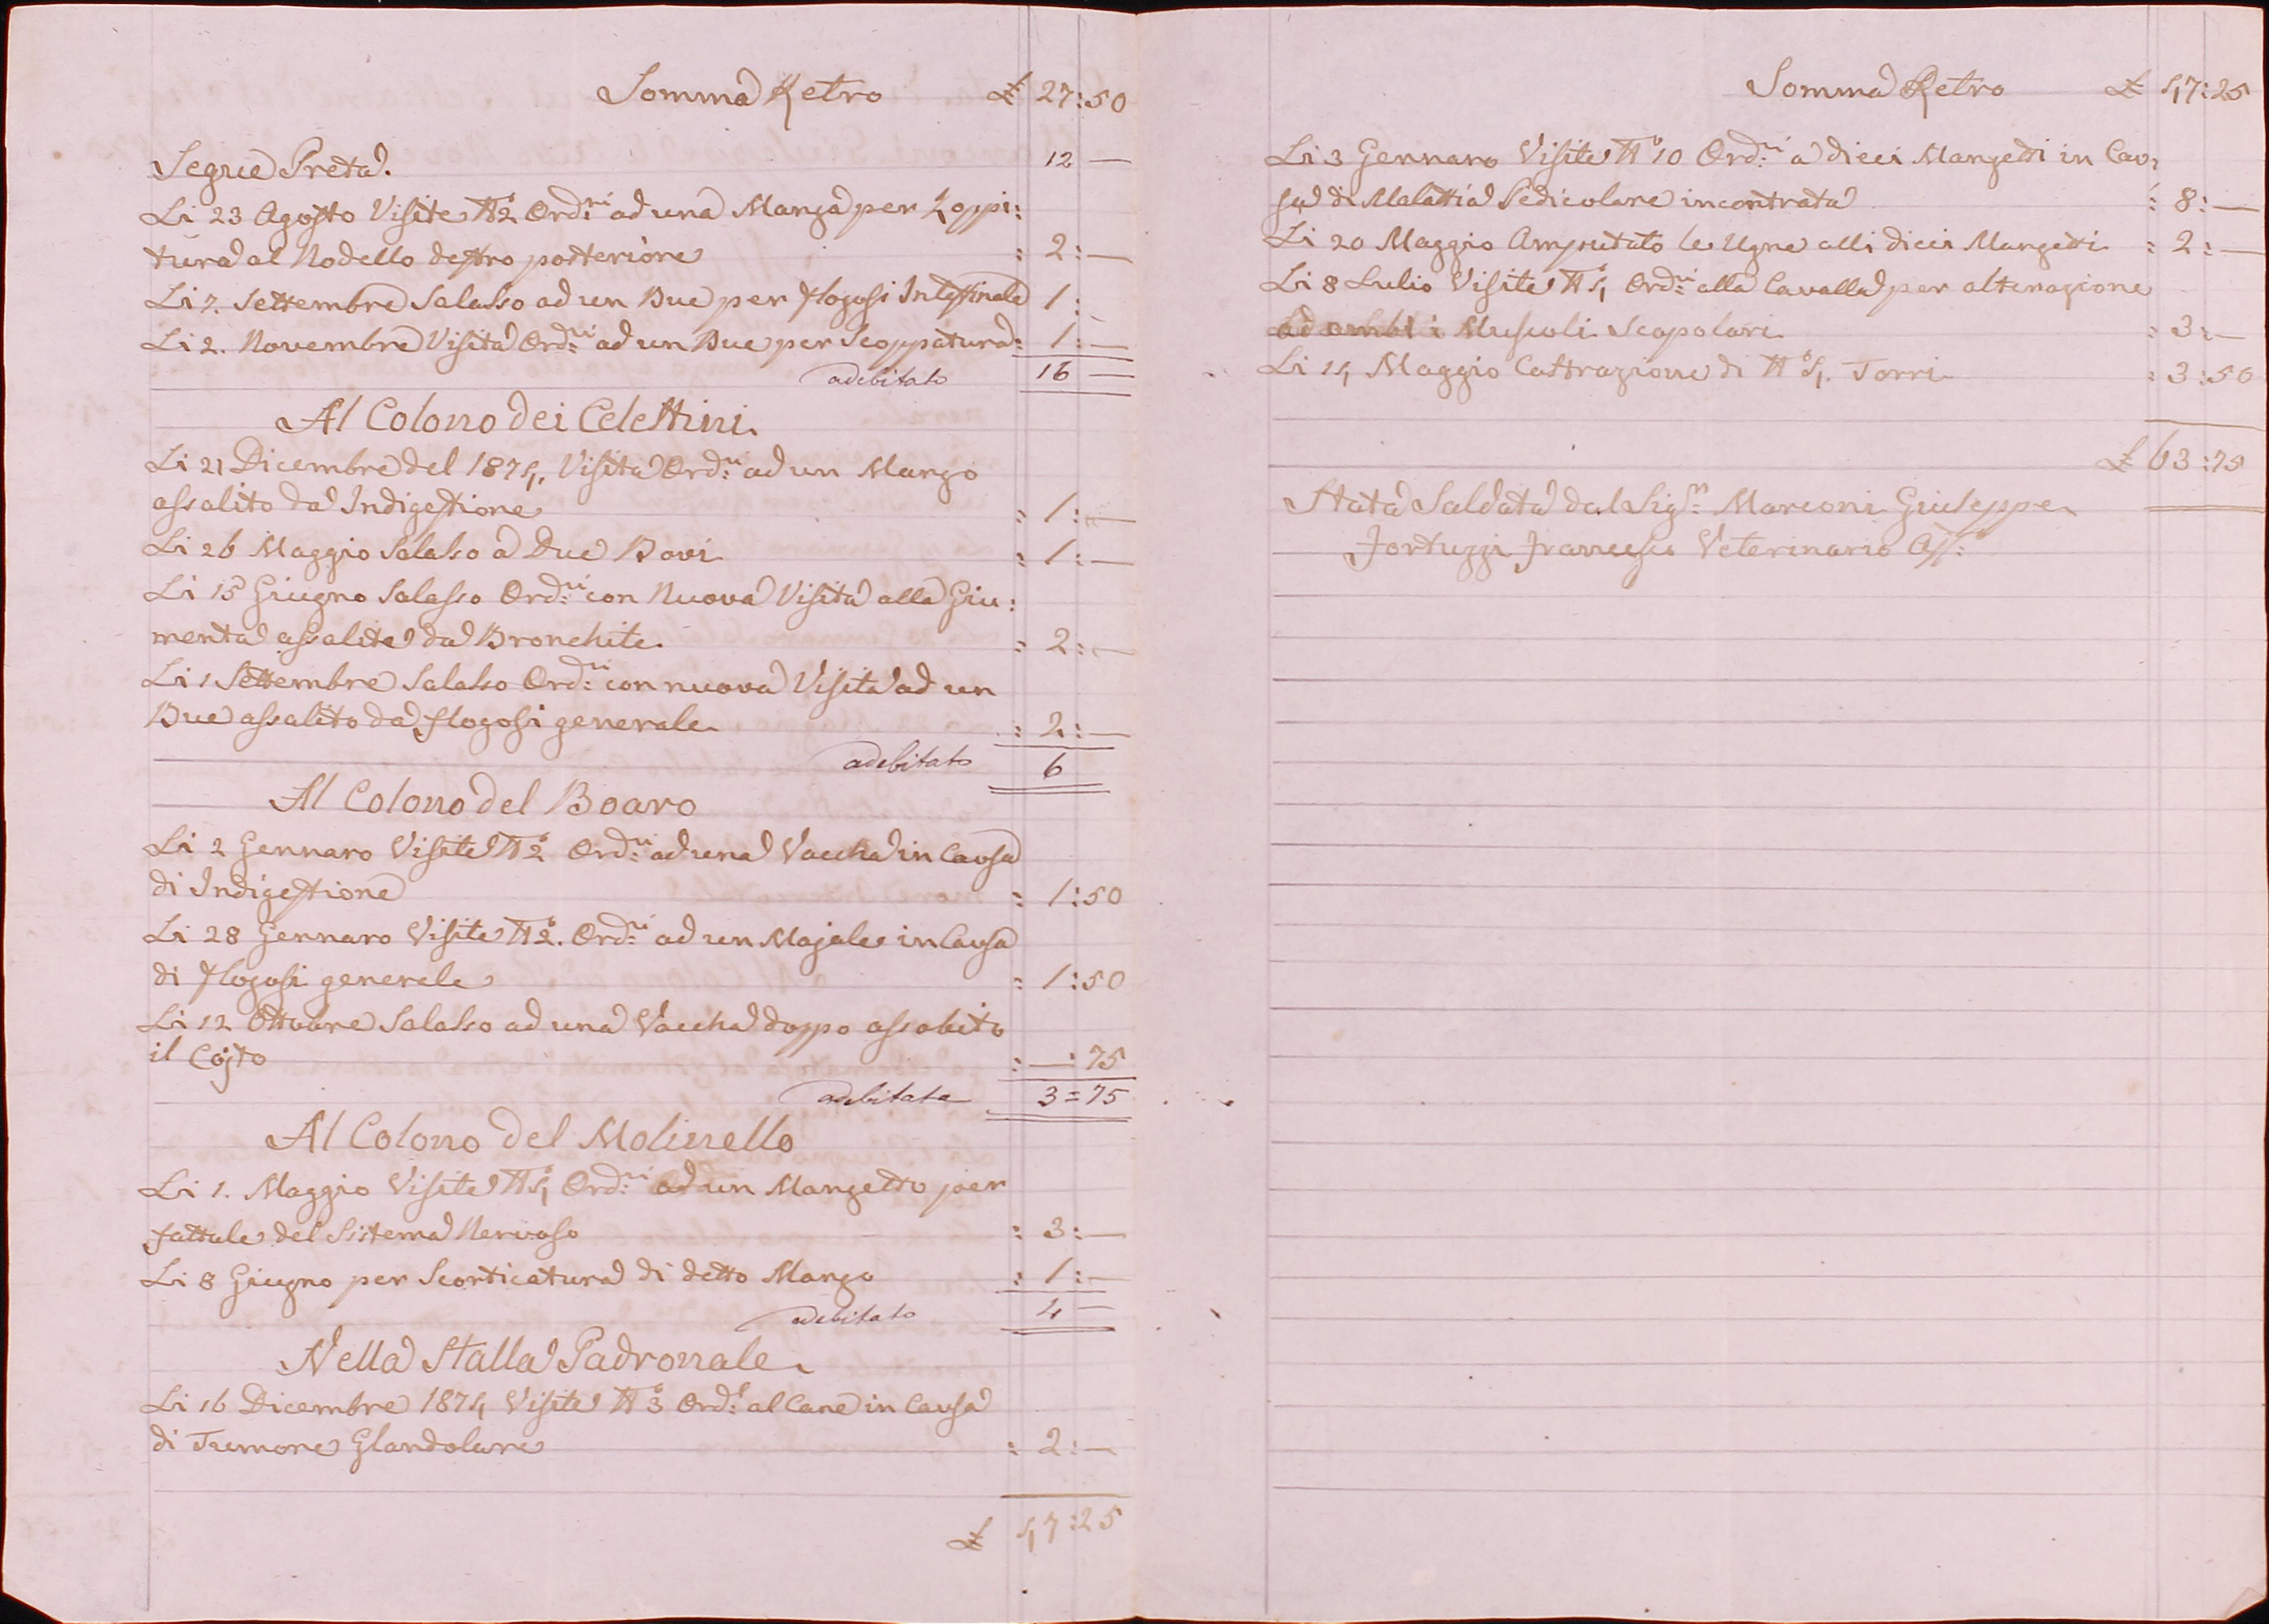 Somma Retro £ 27:50
Segue Preta. 12 —
Li 23 Agosto Visite N° 2 Ord.ri ad una Manza per Zoppi:
tura al Nodello destro posteriore : 2:—
Li 7. Settembre Salasso ad un Bue per flogosi Intestinale 1:
Li 2. Novembre Visita Ord.ri ad un Bue per Scoppatura : 1:—
adebitato 16 —
Al Colono dei Celestini.
Li 21 Dicembre del 1874, Visita Ord.ri ad un Manzo
assalito da Indigestione : 1:—
Li 26 Maggio Salasso a Due Bovi : 1:—
Li 15 Giugno Salasso Ord.ri con Nuova Visita alla Giu:
menta assalita da Bronchite. : 2:—
Li 1 Settembre Salasso Ord.ri con nuova Visita ad un
Bue assalito da flogosi generale : 2:—
adebitato 6
Al Colono del Boaro
Li 2 Gennaro Visite N° 2 Ord.ri ad una Vaccha in Causa
di Indigestione : 1:50
Li 28 Gennaro Visite N° 2. Ord.ri ad un Majale in Causa
di flogosi generale : 1:50
Li 12 Ottobre Salasso ad una Vaccha doppo assobito
il Cojto : —:75
adebitata 3=75
Al Colono del Molinello
Li 1. Maggio Visite N° 4 Ord.ri ad un Manzetto per
fattale del Sistema Nervoso : 3:—
Li 8 Giugno per Scorticatura di detto Manzo : 1:—
adebitato 4 —
Nella Stalla Padronale.
Li 16 Dicembre 1874 Visite N° 3 Ord.e al Cane in Causa
di Tumore Glandolare : 2:—
£ 47:25
Somma Retro £ 47:25
Li 3 Gennaro Visite N° 10 Ord.ri a dieci Manzetti in Cau:
sa di Malattia Pedicolare incontrata : 8:—
Li 20 Maggio Amputato le Ugne alli dieci Manzetti : 2:—
Li 8 Lulio Visite N° 4 Ord.ri alla Cavalla per alterazione
ad ambi i Muscoli Scapolari : 3:—
Li 14 Maggio Castrazione di N° 4. Torri : 3:50
£ 63:75
Stata Saldata dal Sig.r Marconi Giuseppe
Fortuzzi Francesco Veterinario Ass: